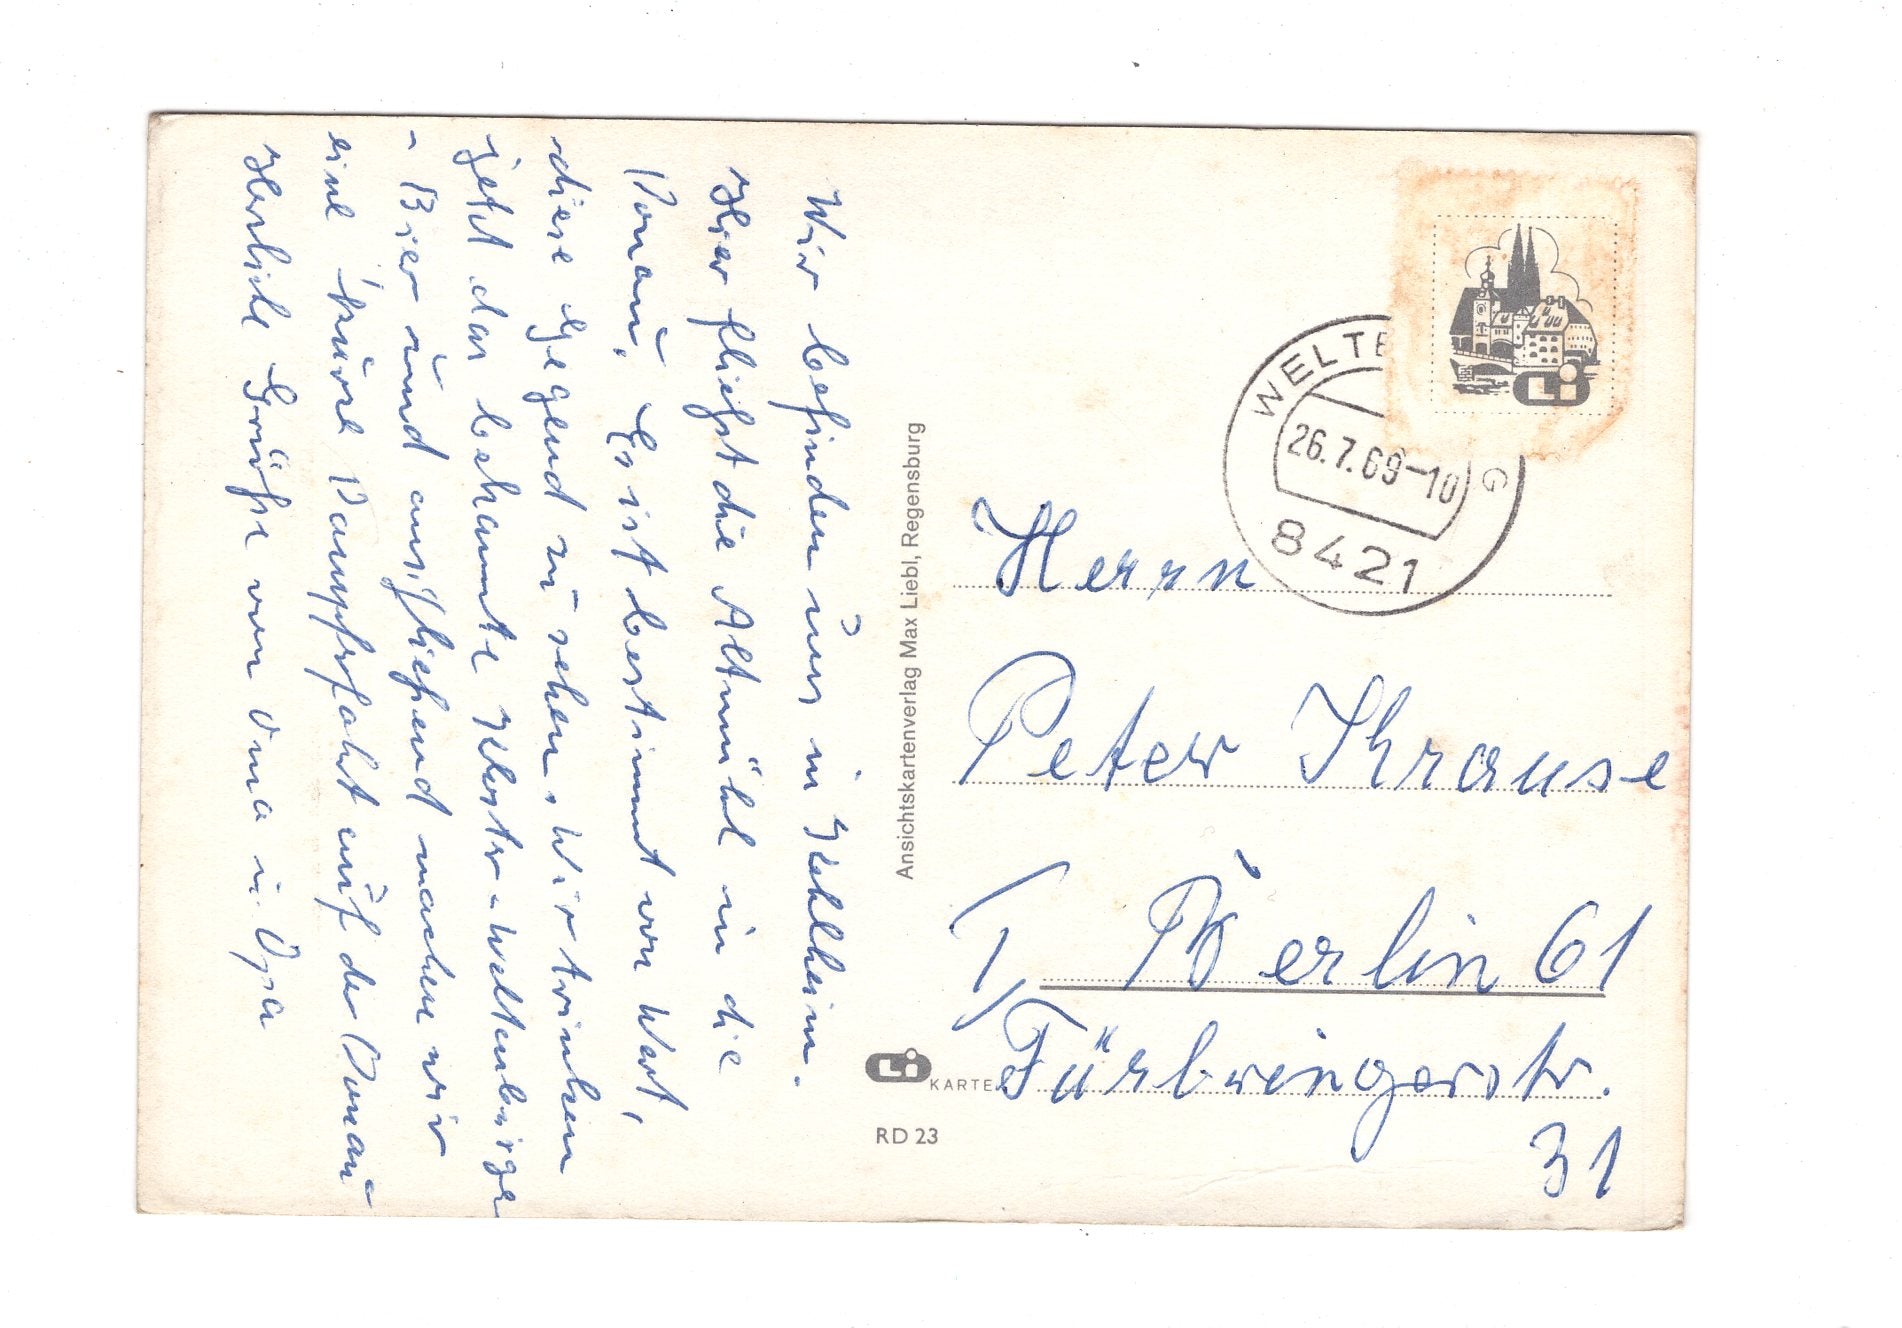 Wir befinden uns in Kehlheim.
Hier fließt die Altmühl in die
Donau. Es ist bestimmt von Wert,
diese Gegend zu sehen. Wir trinken
jetzt das bekannte Kloster-Weltenburger
- Bier und anschließend machen wir
eine kurze Dampferfahrt auf der Donau
Herzliche Grüße von Oma u. Opa
Ansichtskartenverlag Max Liebl, Regensburg
KARTE
RD 23
WELTE G
26.7.69-10
8421
Herrn
Peter Krause
1/ Berlin 61
Fürbringerstr.
31